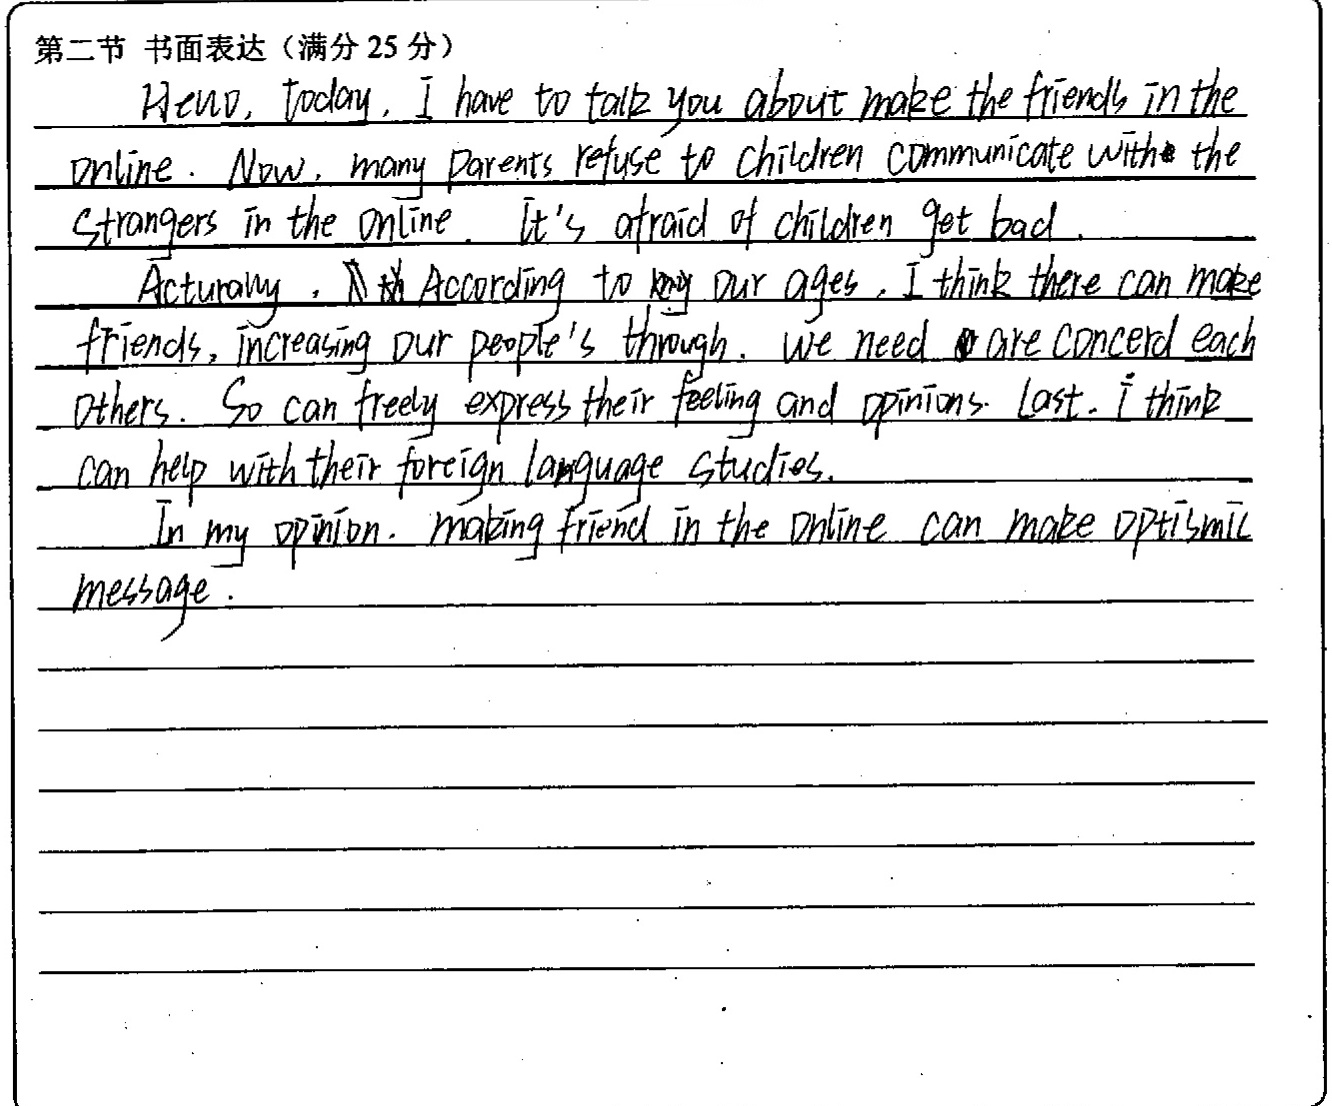 第二节 书面表达（满分 25 分）
Hello, today, I have to talk you about make the friends in the
online. Now, many parents refuse to children communicate with the
strangers in the online. It's afraid of children get bad.
Acturally, According to our ages, I think there can make
friends, increasing our people's through. We need are concerd each
others. So can freely express their feeling and opinions. Last. I think
can help with their foreign language studies.
In my opinion. making friend in the online can make optismic
message.